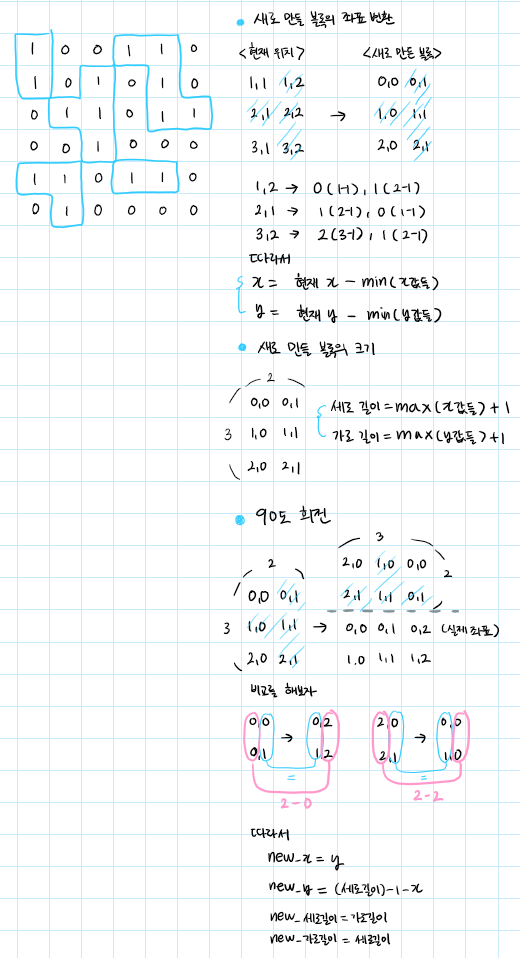 1 0 0 1 1 0
1 0 1 0 1 0
0 1 1 0 1 1
0 0 1 0 0 0
1 1 0 1 1 0
0 1 0 0 0 0
새로 만들 블록의 좌표 변환
<현재 위치> <새로 만든 블록>
1,1 1,2 0,0 0,1
2,1 2,2 → 1,0 1,1
3,1 3,2 2,0 2,1
1,2 → 0(1-1), 1(2-1)
2,1 → 1(2-1), 0(1-1)
3,2 → 2(3-1), 1(2-1)
따라서
x = 현재 x - min(x값들)
y = 현재 y - min(y값들)
새로 만든 블록의 크기
2
0,0 0,1
3 1,0 1,1
2,0 2,1
세로 길이 = max(x값들)+1
가로 길이 = max(y값들)+1
90도 회전
2
0,0 0,1
3 1,0 1,1
2,0 2,1
→
3
2,0 1,0 0,0
2
2,1 1,1 0,1
0,0 0,1 0,2 (실제 좌표)
1.0 1,1 1,2
비교를 해보자
0,0 → 0,2 2,0 → 0,0
0,1 1,2 2,1 1,0
= =
2-0 2-2
따라서
new_x = y
new_y = (세로길이)-1-x
new_세로길이 = 가로길이
new_가로길이 = 세로길이